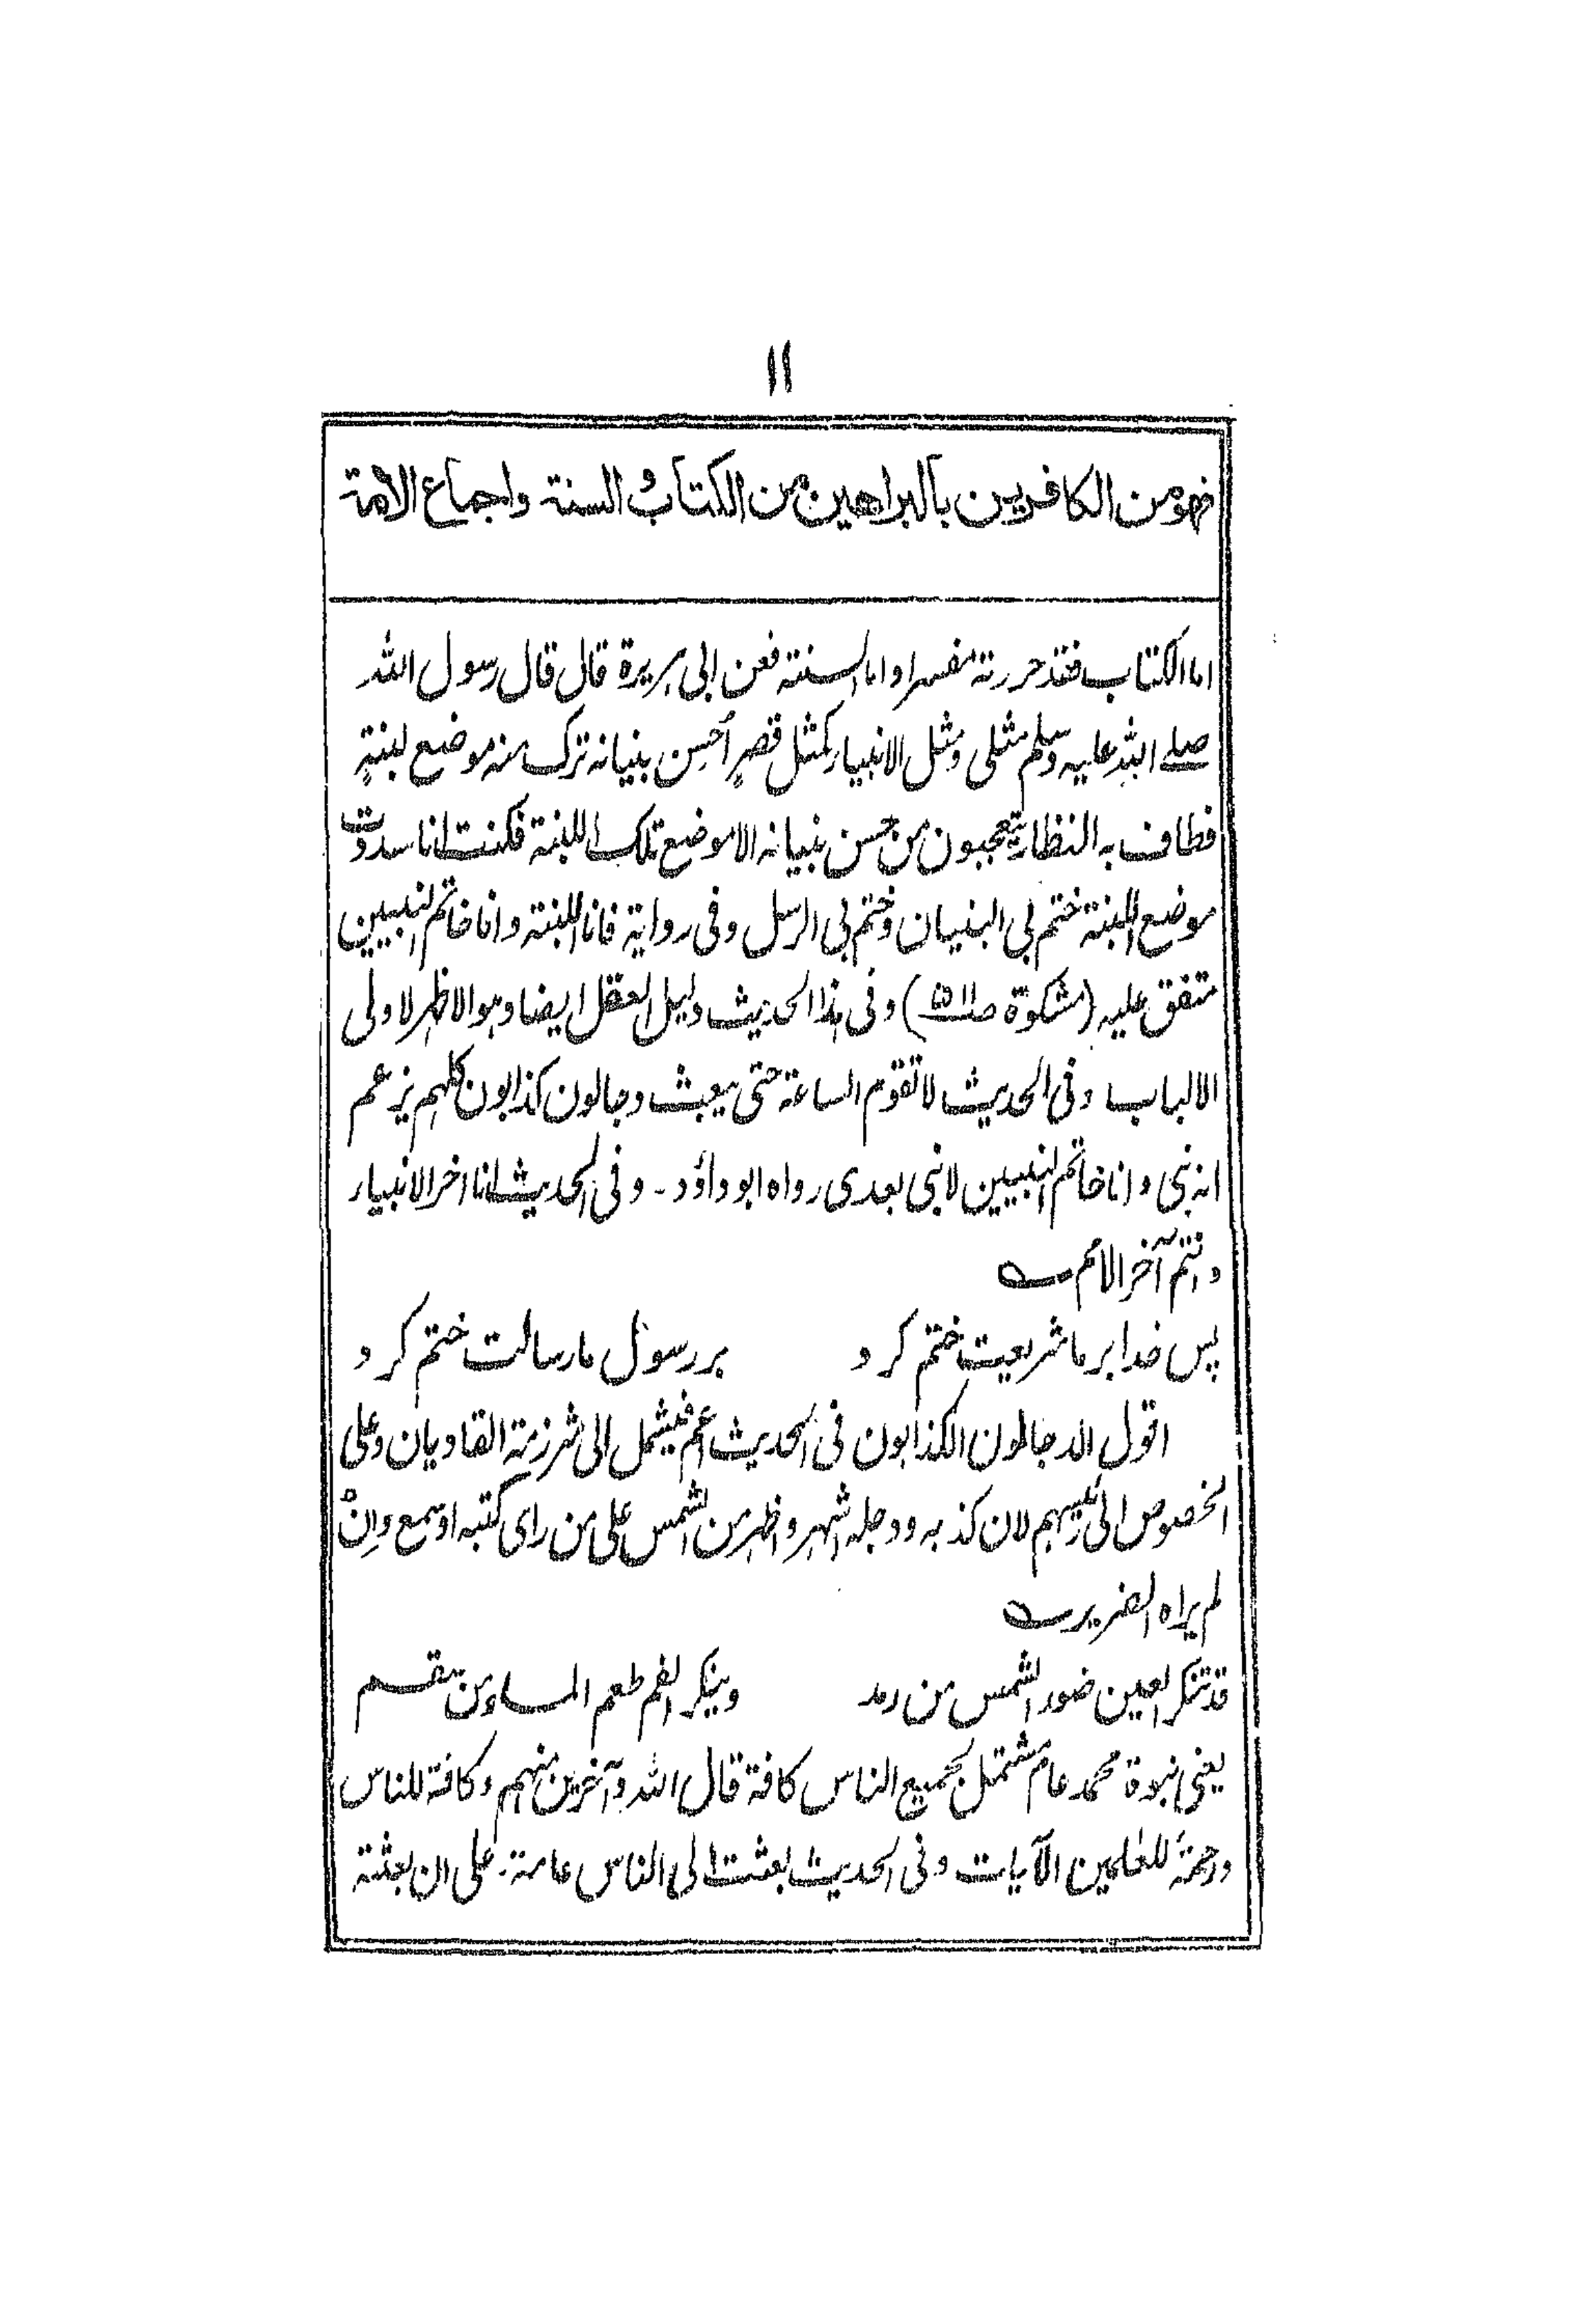 ١١
فهو من الكافرين بالبراهين من الكتاب و السنة واجماع الامة
اما الكتاب فقد حررته مفسرا واما السنته فعن ابی ہریرة قال قال رسول اللہ
صلے اللہ علیہ وسلم مثلی ومثل الانبیاء کمثل قصرٍ اُحسِن بنیانہ ترک منہ موضع لبنةٍ
فطاف بہ النظار یتعجبون من حسن بنیانہ الا موضع تلک اللبنة فکنت انا سددت
موضع اللبنة ختم بی البنیان وختم بی الرسل وفی روایة فانا اللبنة وانا خاتم النبیین
متفق علیہ (مشکوة صا۵۱۱) وفی ہذا الحدیث دلیل العقل ایضا وہو الاظہر لاولی
الالباب وفی الحدیث لا تقوم الساعة حتی یبعث دجالون کذابون کلہم یزعم
انہ نبی وانا خاتم النبیین لا نبی بعدی رواہ ابو داؤد - وفی الحدیث انا اخر الانبیاء
وانتم آخر الامم ؎
پس خدا بر ما شریعت ختم کرد بر رسول ما رسالت ختم کرد
اقول الدجالون الکذابون فی الحدیث اعم فیشمل الی شرزمة القادیان وعلی
الخصوص الی رئیسہم لان کذبہ ودجلہ اشہر واظہر من الشمس علی من رای کتبہ او سمع وانْ
لم یراہ الضریر ؎
قد تنکر العین ضوء الشمس من رمد وینکر الفم طعم الماء من سقم
یعنی نبوة محمد عام مشتمل بجمیع الناس کافة قال اللہ وآخرین منہم وکافة للناس
ورحمۃ للعٰلمین الآیات وفی الحدیث بعثت الی الناس عامة علی ان بعثتہ